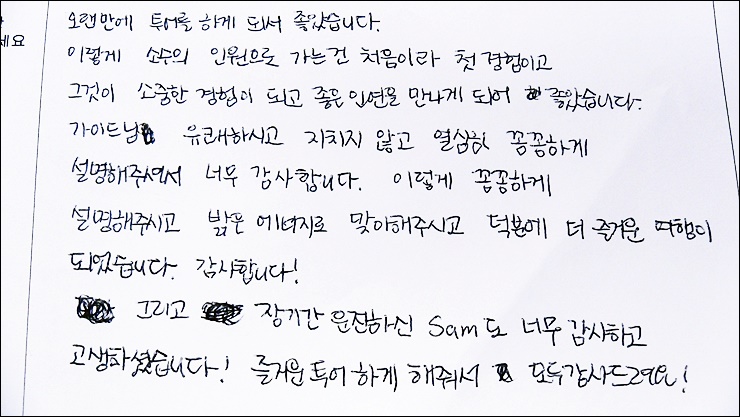 세요
오랜만에 투어를 하게 되서 좋았습니다.
이렇게 소수의 인원으로 가는건 처음이라 첫 경험이고
그것이 소중한 경험이 되고 좋은 인연을 만나게 되어 좋았습니다.
가이드님 유쾌하시고 지치지 않고 열심히 꼼꼼하게
설명해주셔서 너무 감사합니다. 이렇게 꼼꼼하게
설명해주시고 밝은 에너지로 맞아해주시고 덕분에 더 즐거운 여행이
되었습니다. 감사합니다!
그리고 장기간 운전하신 Sam도 너무 감사하고
고생하셨습니다! 즐거운 투어 하게 해줘서 모두 감사드려요!